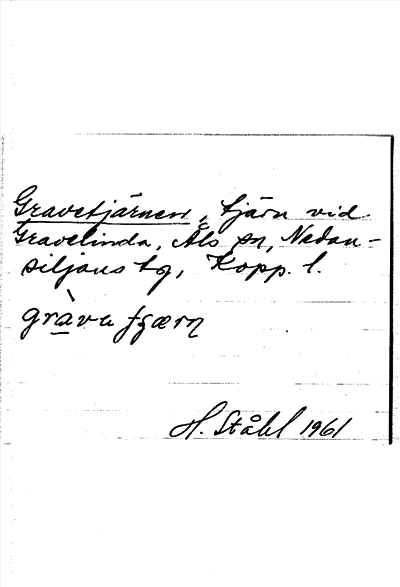 Gravetjärnen, tjärn vid
Gravelinda, Åls sn, Nedan-
siljans tg, Kopp. l.
gràvu fjærn
H. Ståhl 1961